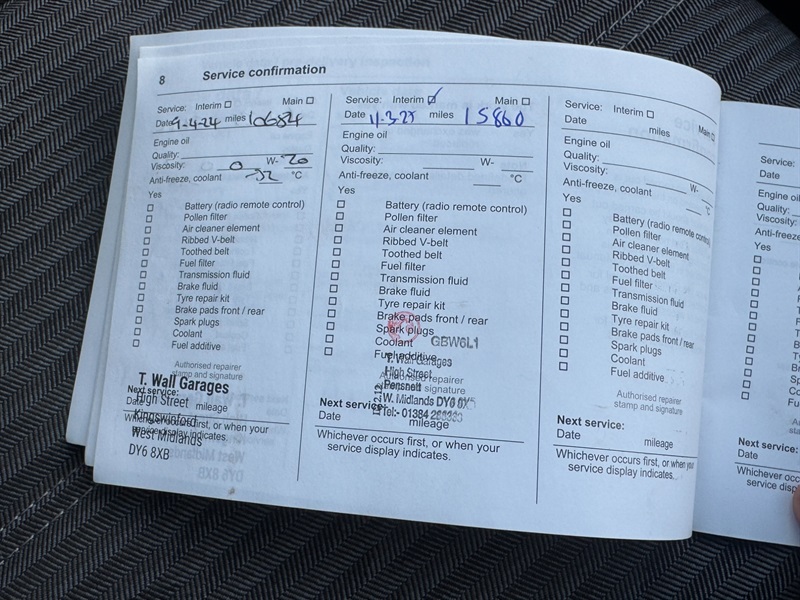 8 Service confirmation
Service: Interim ☐ Main ☐
Date 9-4-24 miles 10684
Engine oil
Quality:
Viscosity: 0 W- 20
Anti-freeze, coolant -32 °C
Yes
☐ Battery (radio remote control)
☐ Pollen filter
☐ Air cleaner element
☐ Ribbed V-belt
☐ Toothed belt
☐ Fuel filter
☐ Transmission fluid
☐ Brake fluid
☐ Tyre repair kit
☐ Brake pads front / rear
☐ Spark plugs
☐ Coolant
☐ Fuel additive
Authorised repairer
stamp and signature
T. Wall Garages
High Street
Kingswinford
West Midlands
DY6 8XB
Next service:
Date mileage
Whichever occurs first, or when your
service display indicates.
Service: Interim ☑ Main ☐
Date 11-3-25 miles 15860
Engine oil
Quality:
Viscosity: W-
Anti-freeze, coolant °C
Yes
☐ Battery (radio remote control)
☐ Pollen filter
☐ Air cleaner element
☐ Ribbed V-belt
☐ Toothed belt
☐ Fuel filter
☐ Transmission fluid
☐ Brake fluid
☐ Tyre repair kit
☐ Brake pads front / rear
☐ Spark plugs
☐ Coolant
☐ Fuel additive
GBW6L1
Authorised repairer
stamp and signature
T. Wall Garages
High Street
Pensnett
W. Midlands DY6
Tel:- 01384
Next service:
Date mileage
Whichever occurs first, or when your
service display indicates.
Service: Interim ☐ Main ☐
Date miles
Engine oil
Quality:
Viscosity: W-
Anti-freeze, coolant °C
Yes
☐ Battery (radio remote control)
☐ Pollen filter
☐ Air cleaner element
☐ Ribbed V-belt
☐ Toothed belt
☐ Fuel filter
☐ Transmission fluid
☐ Brake fluid
☐ Tyre repair kit
☐ Brake pads front / rear
☐ Spark plugs
☐ Coolant
☐ Fuel additive
Authorised repairer
stamp and signature
Next service:
Date mileage
Whichever occurs first, or when your
service display indicates.
Service:
Date
Engine oil
Quality:
Viscosity:
Anti-freeze
Yes
Next service:
Date
Whichever
service